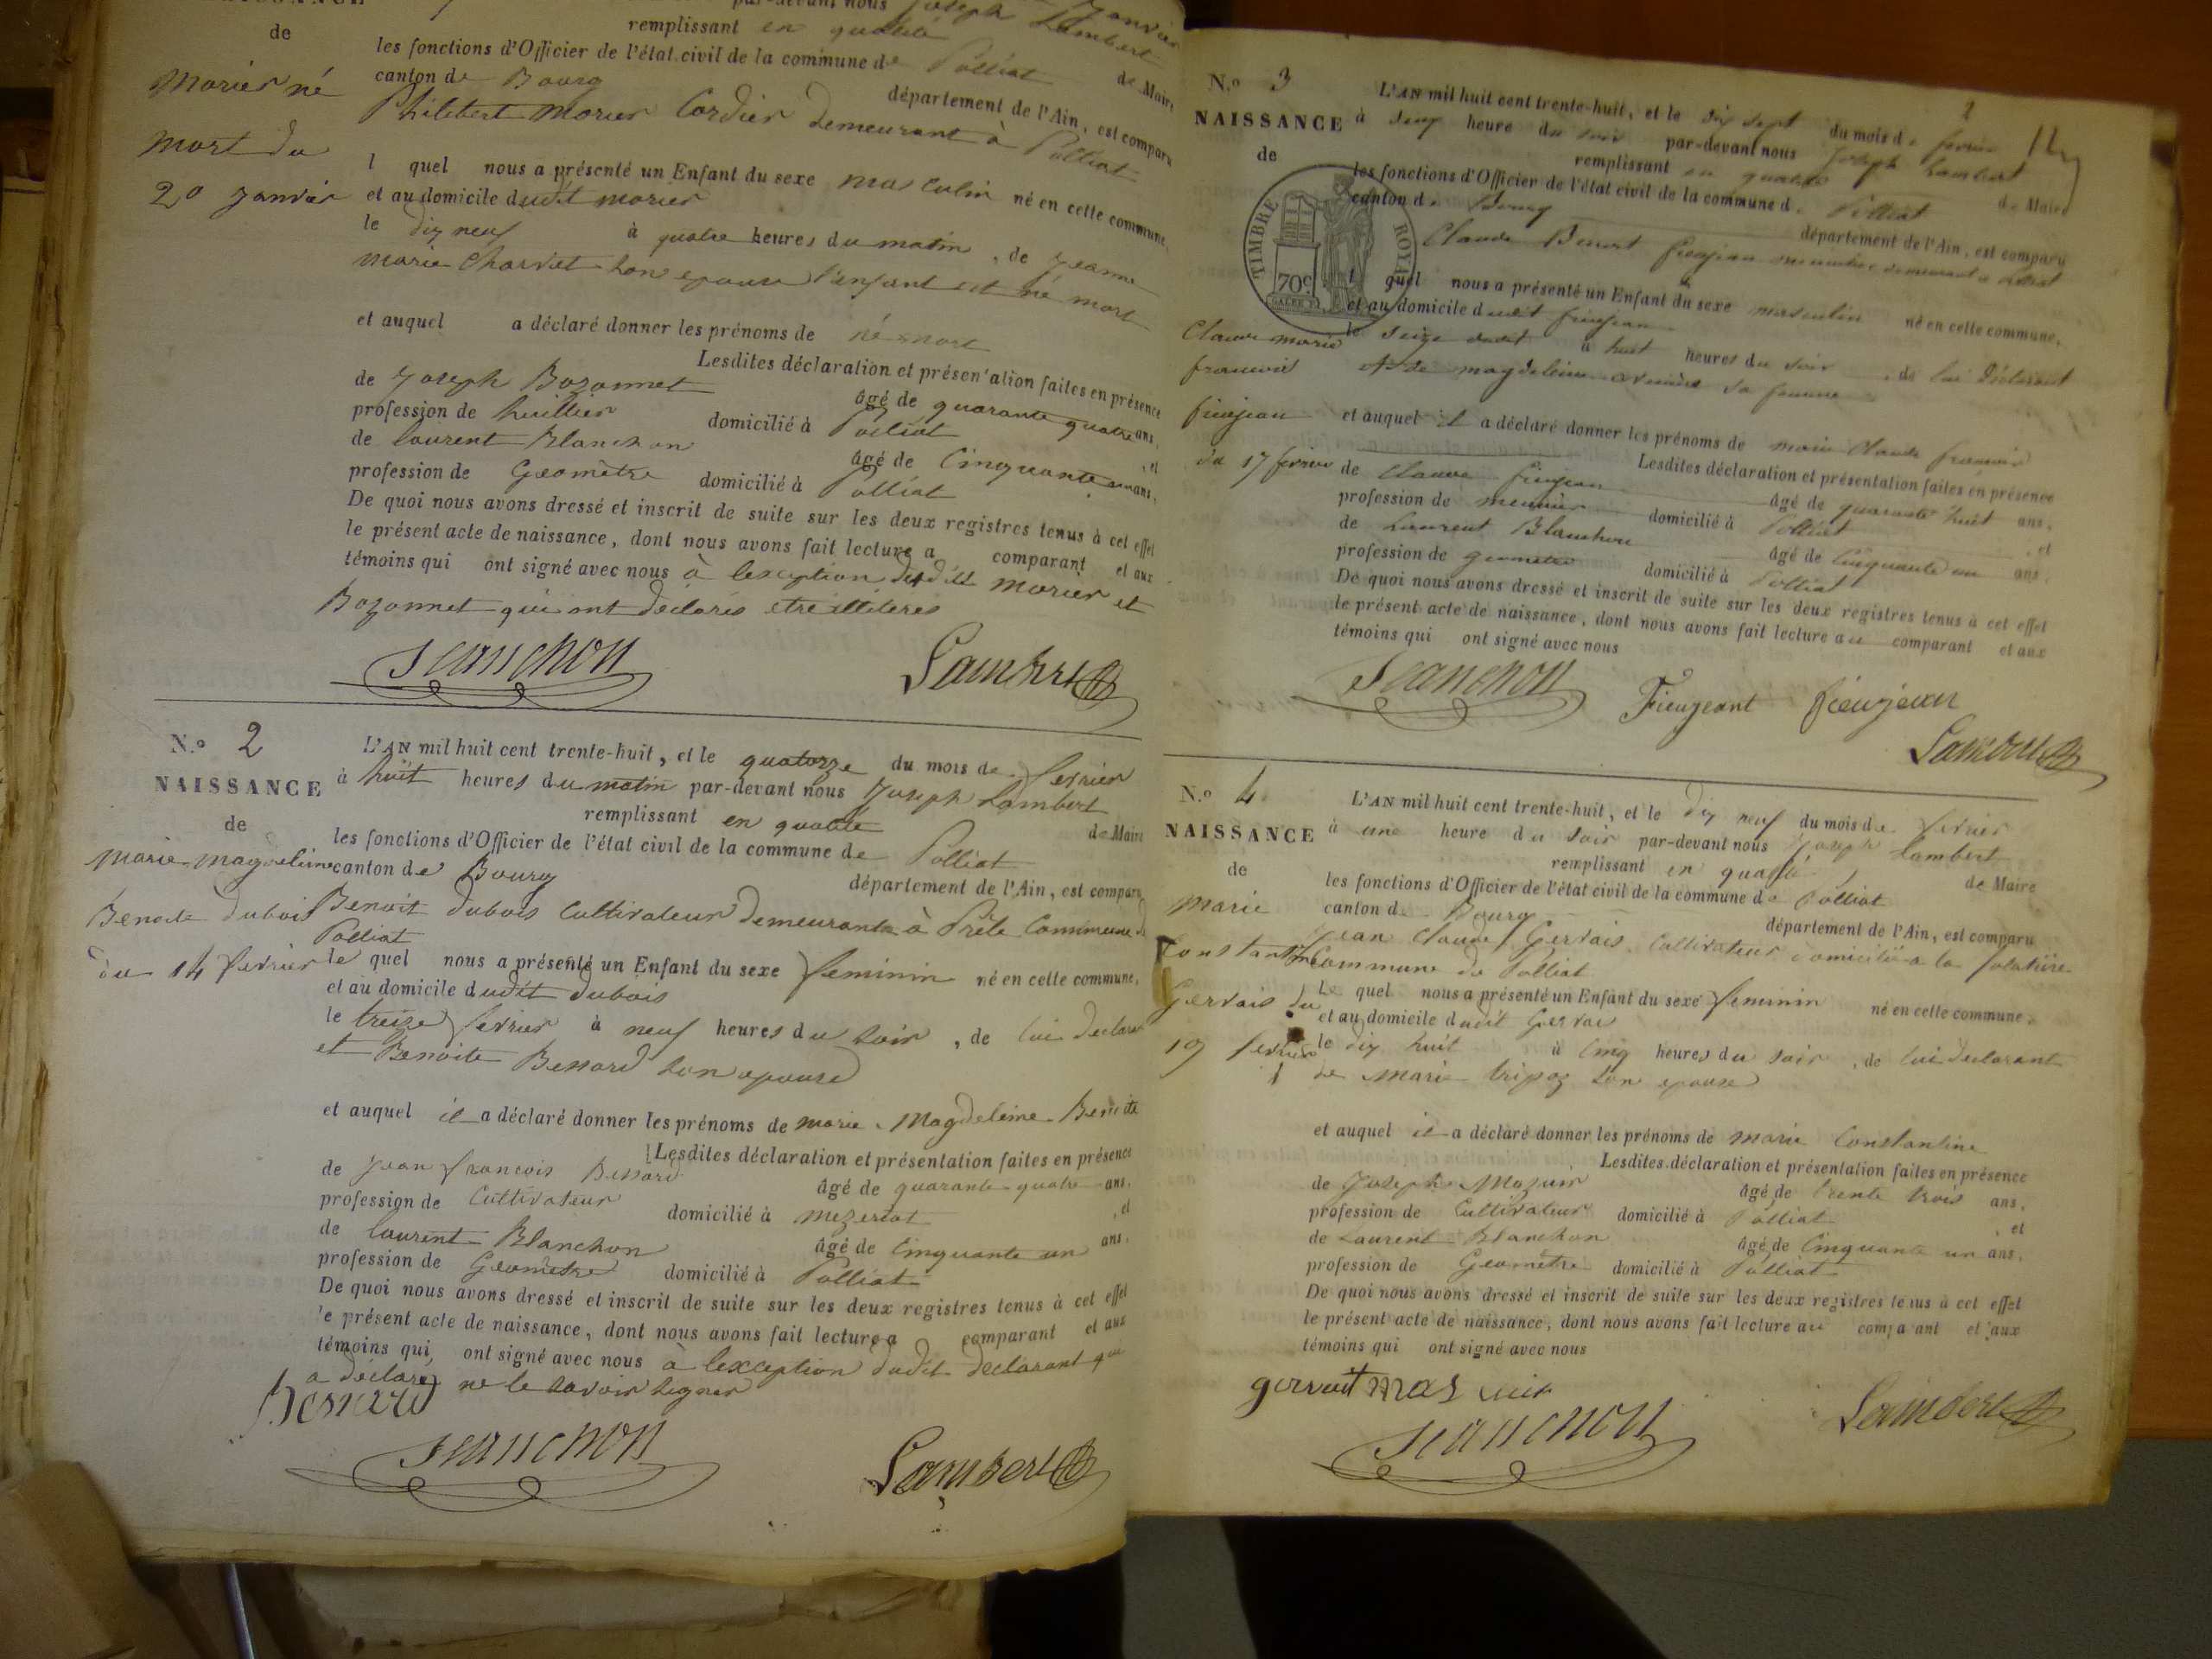 NAISSANCE
de
Morier né
mort du
20 Janvier
par-devant nous Joseph Lambert
remplissant en qualité
de Maire
les fonctions d'Officier de l'état civil de la commune de Polliat
canton de Bourg
département de l'Ain, est comparu
Philibert Morier Cordier demeurant à Polliat
l quel nous a présenté un Enfant du sexe masculin né en cette commune,
et au domicile dudit morier
le dix neuf à quatre heures du matin, de Jeanne
marie Charvet son epouse l'enfant est né mort
et auquel a déclaré donner les prénoms de né mort
Lesdites déclaration et présentation faites en présence
de Joseph Bozonnet âgé de quarante quatre ans,
profession de huillier domicilié à Polliat , et
de laurent Blanchon âgé de Cinquante un ans,
profession de Géomètre domicilié à Polliat
De quoi nous avons dressé et inscrit de suite sur les deux registres tenus à cet effet
le présent acte de naissance, dont nous avons fait lecture a comparant et aux
témoins qui ont signé avec nous à lexception dudit morier et
Bozonnet qui ont déclarés etre illiterés
Blanchon Lambert
N.º 2
NAISSANCE
de
Marie Magdeleine
Benoite dubois
du 14 fevrier
L'AN mil huit cent trente-huit, et le quatorze du mois de fevrier
à huit heures du matin par-devant nous Joseph Lambert
remplissant en qualité
de Maire
les fonctions d'Officier de l'état civil de la commune de Polliat
canton de Bourg
département de l'Ain, est comparu
Benoit dubois Cultivateur demeurant à Prêle Commune de
Polliat
le quel nous a présenté un Enfant du sexe feminin né en cette commune,
et au domicile dudit dubois
le treize fevrier à neuf heures du soir, de lui déclarant
et Benoite Bessard son epouse
et auquel il a déclaré donner les prénoms de marie Magdeleine Benoite
Lesdites déclaration et présentation faites en présence
de Jean francois Bessard âgé de quarante-quatre ans,
profession de Cultivateur domicilié à mezeriat , et
de laurent Blanchon âgé de Cinquante un ans,
profession de Géomètre domicilié à Polliat
De quoi nous avons dressé et inscrit de suite sur les deux registres tenus à cet effet
le présent acte de naissance, dont nous avons fait lecture a comparant et aux
témoins qui ont signé avec nous à lexception dudit declarant qui
a déclaré ne le savoir signer
Bessard
Blanchon Lambert
2
N.º 3
NAISSANCE
de
TIMBRE ROYAL
70 c.
Claude marie
francois
fieujean
du 17 fevrier
L'AN mil huit cent trente-huit, et le dix sept du mois de fevrier
à deux heure du soir par-devant nous Joseph Lambert
remplissant en qualité
de Maire
les fonctions d'Officier de l'état civil de la commune de Polliat
canton de Bourg
département de l'Ain, est comparu
Claude Benoit fieujean meunier demeurant à Polliat
l quel nous a présenté un Enfant du sexe masculin né en cette commune,
et au domicile dudit fieujean
le seize dudit à huit heures du soir, de lui déclarant
et de magdeleine sa femme
et auquel il a déclaré donner les prénoms de marie Claude francois
Lesdites déclaration et présentation faites en présence
de Claude fieujean âgé de quarante huit ans,
profession de meunier domicilié à Polliat , et
de Laurent Blanchon âgé de Cinquante un ans,
profession de geometre domicilié à Polliat
De quoi nous avons dressé et inscrit de suite sur les deux registres tenus à cet effet
le présent acte de naissance, dont nous avons fait lecture au comparant et aux
témoins qui ont signé avec nous
Blanchon Fieujeant fieujean
Lambert
N.º 4
NAISSANCE
de
Marie
Constantine
Gervais du
19 fevrier
L'AN mil huit cent trente-huit, et le dix neuf du mois de fevrier
à une heure du soir par-devant nous Joseph Lambert
remplissant en qualité
de Maire
les fonctions d'Officier de l'état civil de la commune de Polliat
canton d Bourg
département de l'Ain, est comparu
Jean Claude Gervais Cultivateur domicilié a la
Commune de Polliat
Le quel nous a présenté un Enfant du sexe feminin né en cette commune,
et au domicile dudit Gervais
le dix huit à Cinq heures du soir, de lui declarant
de Marie tripoz son epouse
et auquel il a déclaré donner les prénoms de marie Constantine
Lesdites déclaration et présentation faites en présence
de Joseph Mazuir âgé de trente trois ans,
profession de Cultivateur domicilié à Polliat , et
de Laurent Blanchon âgé de Cinquante un ans,
profession de Géomètre domicilié à Polliat
De quoi nous avons dressé et inscrit de suite sur les deux registres tenus à cet effet
le présent acte de naissance, dont nous avons fait lecture au comparant et aux
témoins qui ont signé avec nous
gervait mas uir
Blanchon Lambert